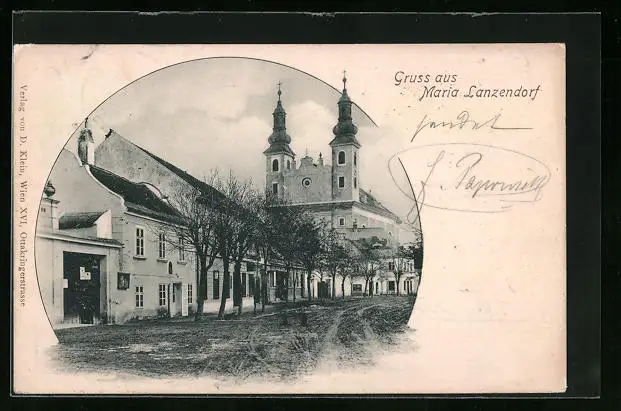 Gruss aus
Maria Lanzendorf
sendet
Verlag von D. Klein, Wien XVI, Ottakringerstrasse